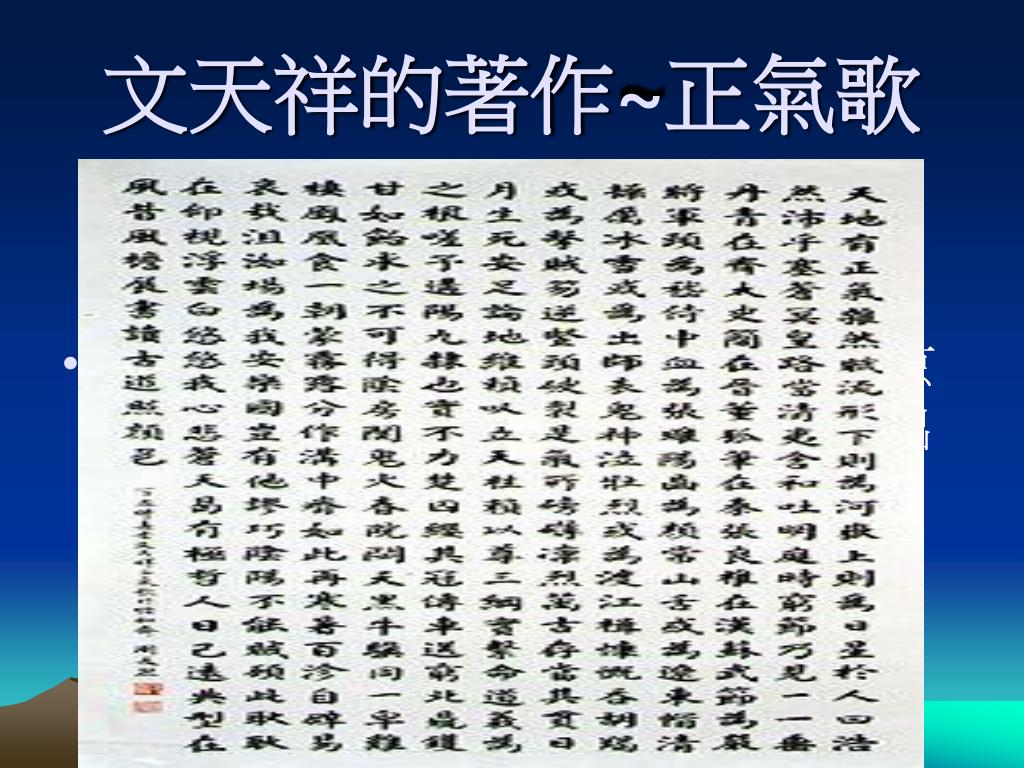 文天祥的著作~正氣歌
天地有正氣雜然賦流形下則為河嶽上則為日星於人曰浩
然沛乎塞蒼冥皇路當清夷含和吐明庭時窮節乃見一一垂
丹青在齊太史簡在晉董狐筆在秦張良椎在漢蘇武節為嚴
將軍頭為嵇侍中血為張睢陽齒為顏常山舌或為遼東帽清
操厲冰雪或為出師表鬼神泣壯烈或為渡江楫慷慨吞胡羯
或為擊賊笏逆豎頭破裂是氣所磅礡凜烈萬古存當其貫日
月生死安足論地維賴以立天柱賴以尊三綱實繫命道義為
之根嗟予遘陽九隸也實不力楚囚纓其冠傳車送窮北鼎鑊
甘如飴求之不可得陰房闃鬼火春院閟天黑牛驥同一皁雞
棲鳳凰食一朝蒙霧露分作溝中瘠如此再寒暑百沴自辟易
哀哉沮洳場為我安樂國豈有他繆巧陰陽不能賊顧此耿耿
在仰視浮雲白悠悠我心悲蒼天曷有極哲人日已遠典型在
夙昔風檐展書讀古道照顏色